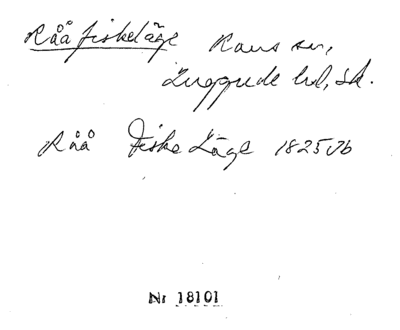 Råå fiskeläge Raus sn,
Luggude hd, Sk.
Råå Fiske Läge 1825 Jb
Nr 18101